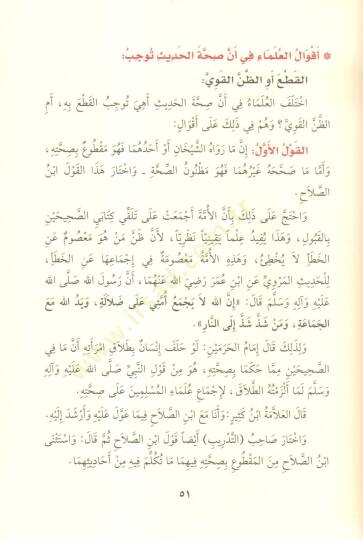 * أَقْوَالُ العُلَمَاءِ فِي أَنَّ صِحَّةَ الحَدِيثِ تُوجِبُ:
القَطْعَ أَوِ الظَّنَّ القَوِيَّ:
اخْتَلَفَ العُلَمَاءُ فِي أَنَّ صِحَّةَ الحَدِيثِ أَهِيَ تُوجِبُ القَطْعَ بِهِ، أَمِ
الظَّنَّ القَوِيَّ؟ وَهُمْ فِي ذَلِكَ عَلَى أَقْوَالٍ:
القَوْلُ الأَوَّلُ: إِنَّ مَا رَوَاهُ الشَّيْخَانِ أَوْ أَحَدُهُمَا فَهُوَ مَقْطُوعٌ بِصِحَّتِهِ،
وَأَمَّا مَا صَحَّحَهُ غَيْرُهُمَا فَهُوَ مَظْنُونُ الصِّحَّةِ ـ وَاخْتَارَ هَذَا القَوْلَ ابْنُ
الصَّلَاحِ.
وَاحْتَجَّ عَلَى ذَلِكَ بِأَنَّ الأُمَّةَ أَجْمَعَتْ عَلَى تَلَقِّي كِتَابَيِ الصَّحِيحَيْنِ
بِالقَبُولِ، وَهَذَا يُفِيدُ عِلْماً يَقِينِيّاً نَظَرِيّاً، لأَنَّ ظَنَّ مَنْ هُوَ مَعْصُومٌ عَنِ
الخَطَأِ لَا يُخْطِئُ، وَهَذِهِ الأُمَّةُ مَعْصُومَةٌ فِي إِجْمَاعِهَا عَنِ الخَطَأِ،
لِلْحَدِيثِ المَرْوِيِّ عَنِ ابْنِ عُمَرَ رَضِيَ اللهُ عَنْهُمَا، أَنَّ رَسُولَ اللهِ صَلَّى اللهُ
عَلَيْهِ وَآلِهِ وَسَلَّمَ قَالَ: «إِنَّ اللهَ لَا يَجْمَعُ أُمَّتِي عَلَى ضَلَالَةٍ، وَيَدُ اللهِ مَعَ
الجَمَاعَةِ، وَمَنْ شَذَّ شَذَّ إِلَى النَّارِ».
وَلِذَلِكَ قَالَ إِمَامُ الحَرَمَيْنِ: لَوْ حَلَفَ إِنْسَانٌ بِطَلَاقِ امْرَأَتِهِ أَنَّ مَا فِي
الصَّحِيحَيْنِ مِمَّا حَكَمَا بِصِحَّتِهِ، هُوَ مِنْ قَوْلِ النَّبِيِّ صَلَّى اللهُ عَلَيْهِ وَآلِهِ
وَسَلَّمَ لَمَا أَلْزَمْتُهُ الطَّلَاقَ، لإِجْمَاعِ عُلَمَاءِ المُسْلِمِينَ عَلَى صِحَّتِهِ.
قَالَ العَلَّامَةُ ابْنُ كَثِيرٍ: وَأَنَا مَعَ ابْنِ الصَّلَاحِ فِيمَا عَوَّلَ عَلَيْهِ وَأَرْشَدَ إِلَيْهِ.
وَاخْتَارَ صَاحِبُ (التَّدْرِيبِ) أَيْضاً قَوْلَ ابْنِ الصَّلَاحِ ثُمَّ قَالَ: وَاسْتَثْنَى
ابْنُ الصَّلَاحِ مِنَ المَقْطُوعِ بِصِحَّتِهِ فِيهِمَا مَا تُكُلِّمَ فِيهِ مِنْ أَحَادِيثِهِمَا.
٥١